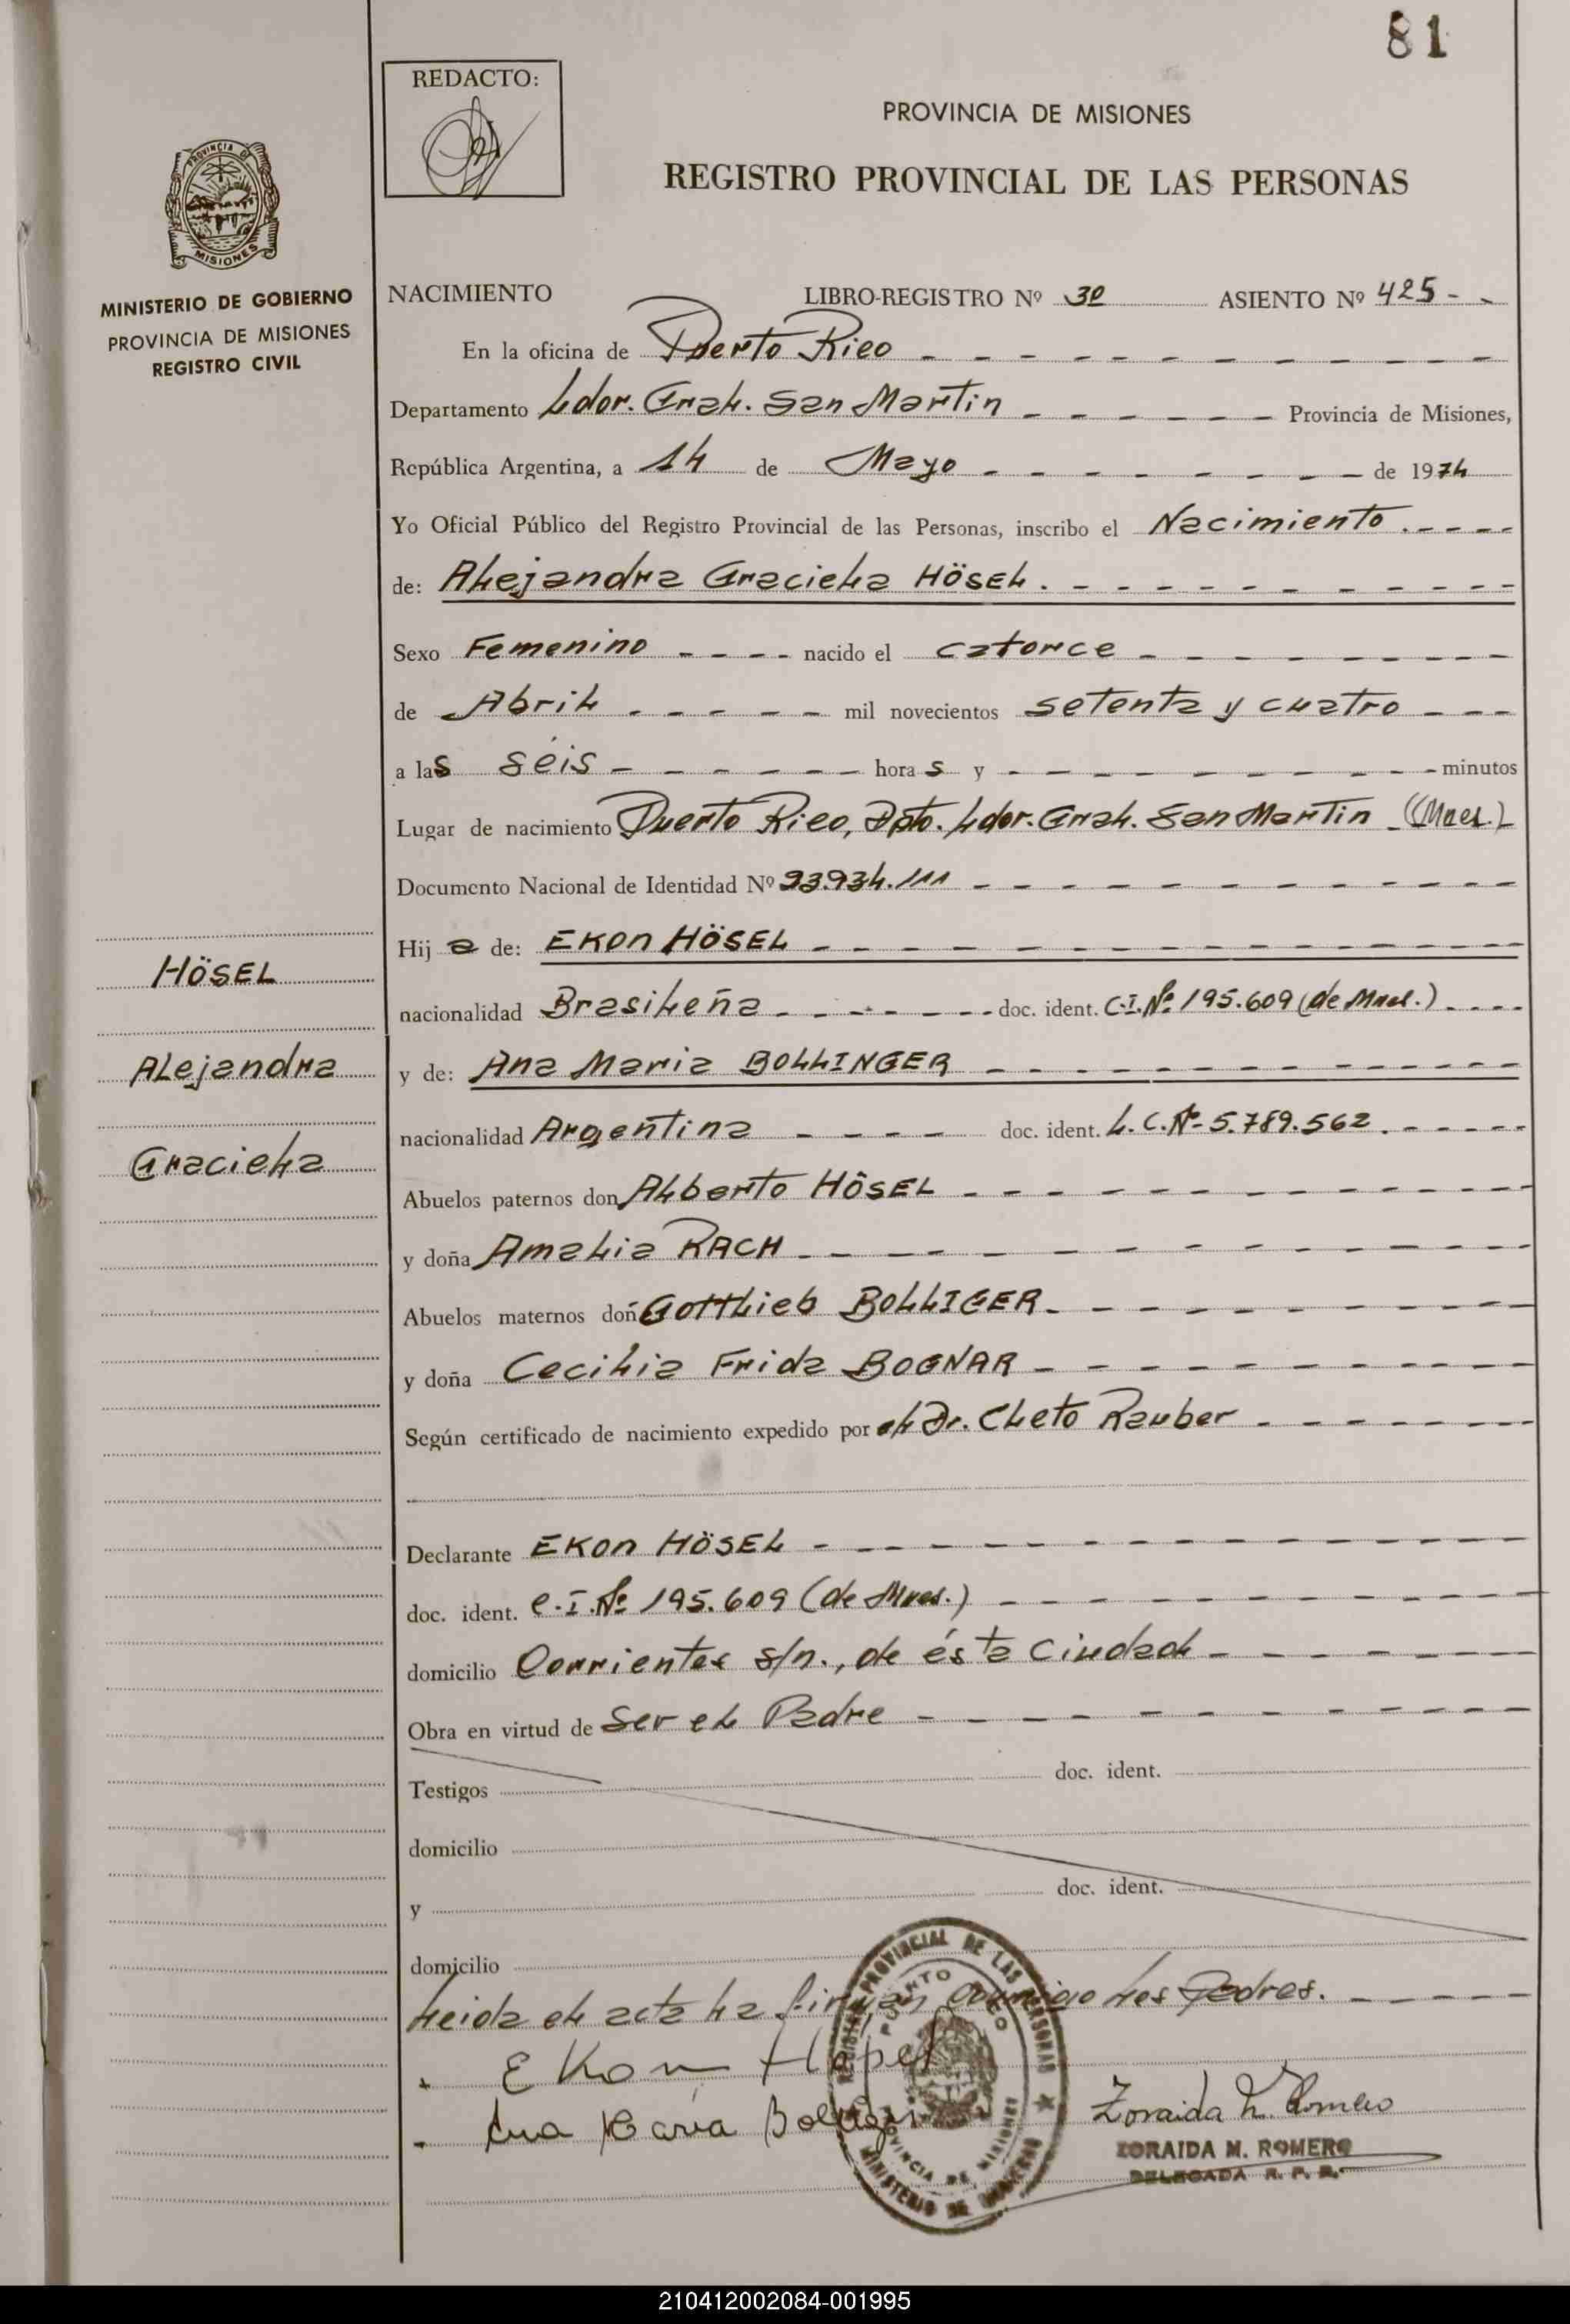 81
REDACTO:
PROVINCIA DE MISIONES
REGISTRO PROVINCIAL DE LAS PERSONAS
PROVINCIA DE
MISIONES
MINISTERIO DE GOBIERNO
PROVINCIA DE MISIONES
REGISTRO CIVIL
NACIMIENTO LIBRO-REGISTRO Nº 30 ASIENTO Nº 425 - -
En la oficina de Puerto Rico
Departamento Ldor. Gral. San Martin Provincia de Misiones,
República Argentina, a 14 de Mayo de 1974
Yo Oficial Público del Registro Provincial de las Personas, inscribo el Nacimiento
de: Alejandra Graciela HÖSEL.
Sexo Femenino nacido el catorce
de Abril mil novecientos setenta y cuatro
a las seis horas y minutos
Lugar de nacimiento Puerto Rico, Dpto. Ldor. Gral. San Martin (Mnes.)
Documento Nacional de Identidad Nº 23.934.111
Hija de: EKON HÖSEL
nacionalidad Brasileña doc. ident. C.I. Nº 195.609 (de Mnes.)
y de: Ana Maria BOLLINGER
nacionalidad Argentina doc. ident. L.C. Nº 5.789.562.
Abuelos paternos don Alberto HÖSEL
y doña Amalia RACH
Abuelos maternos don Gottlieb BOLLIGER
y doña Cecilia Frida BOGNAR
Según certificado de nacimiento expedido por el Dr. Cleto Rauber
HÖSEL
Alejandra
Graciela
Declarante EKON HÖSEL
doc. ident. C.I. Nº 195.609 (de Mnes.)
domicilio Corrientes s/n., de ésta Ciudad
Obra en virtud de ser el Padre
Testigos doc. ident.
domicilio
y doc. ident.
domicilio
Leida el acta la firman conmigo los Padres.
Ekon Hösel
Ana Maria Bolliger
REGISTRO PROVINCIAL DE LAS PERSONAS
PUERTO RICO
PROVINCIA DE MISIONES
MINISTERIO DE GOBIERNO
Zoraida M. Romero
ZORAIDA M. ROMERO
DELEGADA R. P. P.
210412002084-001995